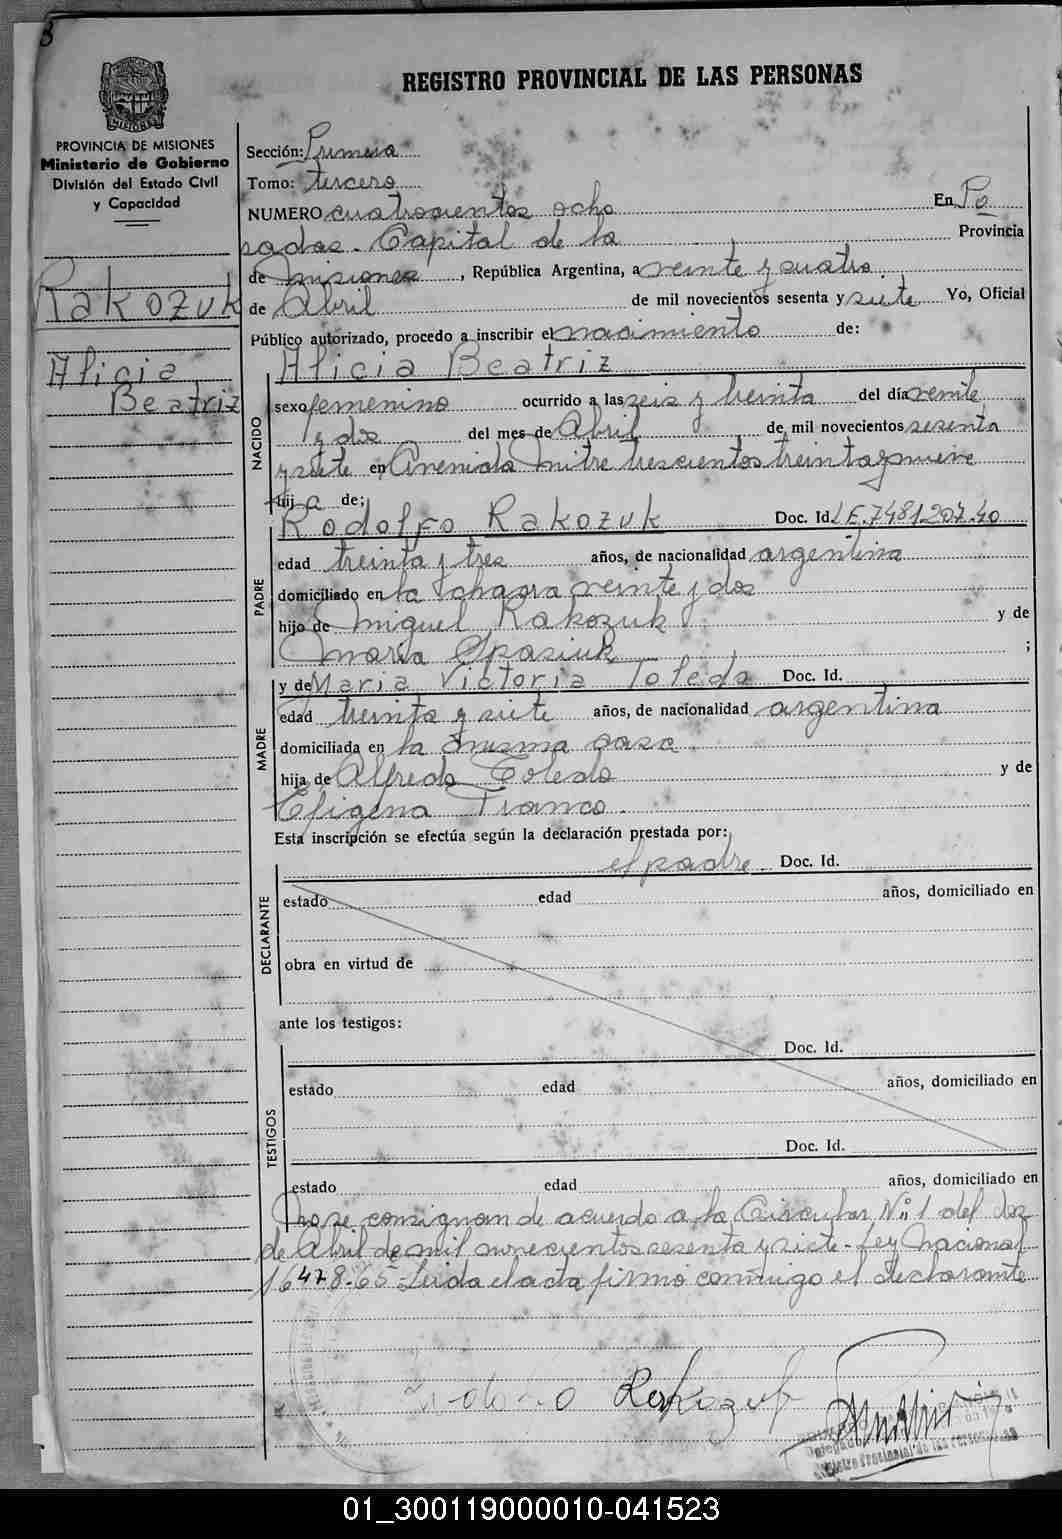 REGISTRO PROVINCIAL DE LAS PERSONAS
PROVINCIA DE MISIONES
Ministerio de Gobierno
División del Estado Civil
y Capacidad
Rakozuk
Alicia
Beatriz
Sección: Primera
Tomo: tercero
NUMERO cuatrocientos ocho En Po
sadas. Capital de la Provincia
de Misiones, República Argentina, a veinte y cuatro
de Abril de mil novecientos sesenta y siete Yo, Oficial
Público autorizado, procedo a inscribir el nacimiento de:
Alicia Beatriz
NACIDO
sexo femenino ocurrido a las seis y treinta del día veinte
y dos del mes de Abril de mil novecientos sesenta
y siete en Avenida Mitre trescientos treinta y nueve
hija de:
PADRE
Rodolfo Rakozuk Doc. Id. L.E.7481207.40
edad treinta y tres años, de nacionalidad argentina
domiciliado en la chacra veinte y dos
hijo de Miguel Rakozuk y de
Maria Spasiuk ;
MADRE
y de Maria Victoria Toledo Doc. Id.
edad treinta y siete años, de nacionalidad argentina
domiciliada en la misma casa
hija de Alfredo Toledo y de
Efigena Franco.
Esta inscripción se efectúa según la declaración prestada por:
DECLARANTE
el padre. Doc. Id.
estado edad años, domiciliado en
obra en virtud de
ante los testigos:
TESTIGOS
Doc. Id.
estado edad años, domiciliado en
Doc. Id.
estado edad años, domiciliado en
No se consignan de acuerdo a la Circular Nº 1 del dos
de Abril de mil novecientos sesenta y siete- Ley Nacional
16478-65- Leida el acta firmó conmigo el declarante
Rakozuk
Registro Provincial de las Personas
01_300119000010-041523